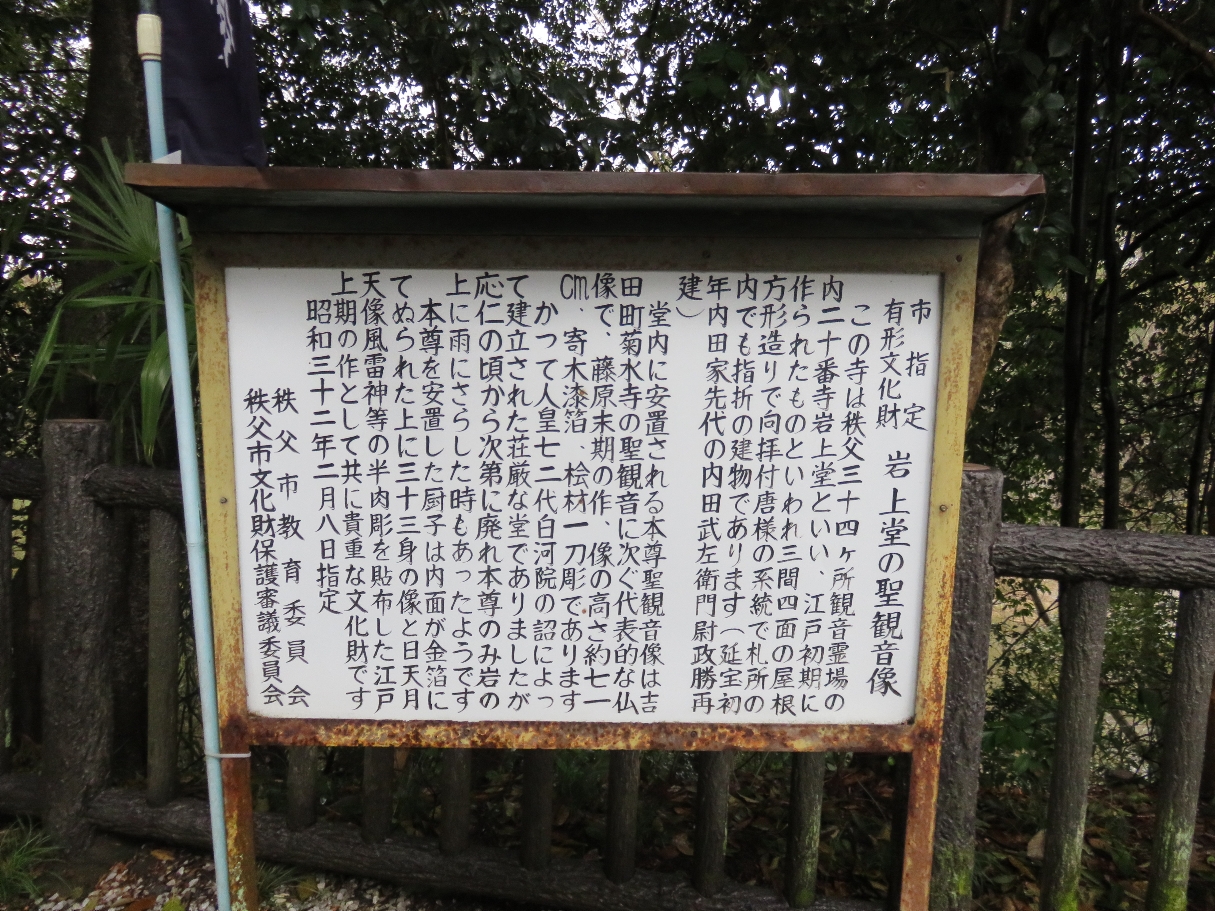 市指定
有形文化財 岩上堂の聖観音像
この寺は秩父三十四ヶ所観音霊場の
内二十番寺岩上堂といい、江戸初期に
作られたものといわれ三間四面の屋根
方形造りで向拝付唐様の系統で札所の
内でも指折の建物であります（延宝初
年内田家先代の内田武左衛門尉政勝再
建）
堂内に安置される本尊聖観音像は吉
田町菊水寺の聖観音に次ぐ代表的な仏
像で、藤原末期の作、像の高さ約七一
cm、寄木漆箔、桧材一刀彫であります
かつて人皇七二代白河院の詔によっ
て建立された荘厳な堂でありましたが
応仁の頃から次第に廃れ本尊のみ岩の
上に雨にさらした時もあったようです
本尊を安置した厨子は内面が金箔に
てぬられた上に三十三身の像と日天月
天像風雷神等の半肉彫を貼布した江戸
上期の作として共に貴重な文化財です
昭和三十二年二月八日指定
秩父市教育委員会
秩父市文化財保護審議委員会